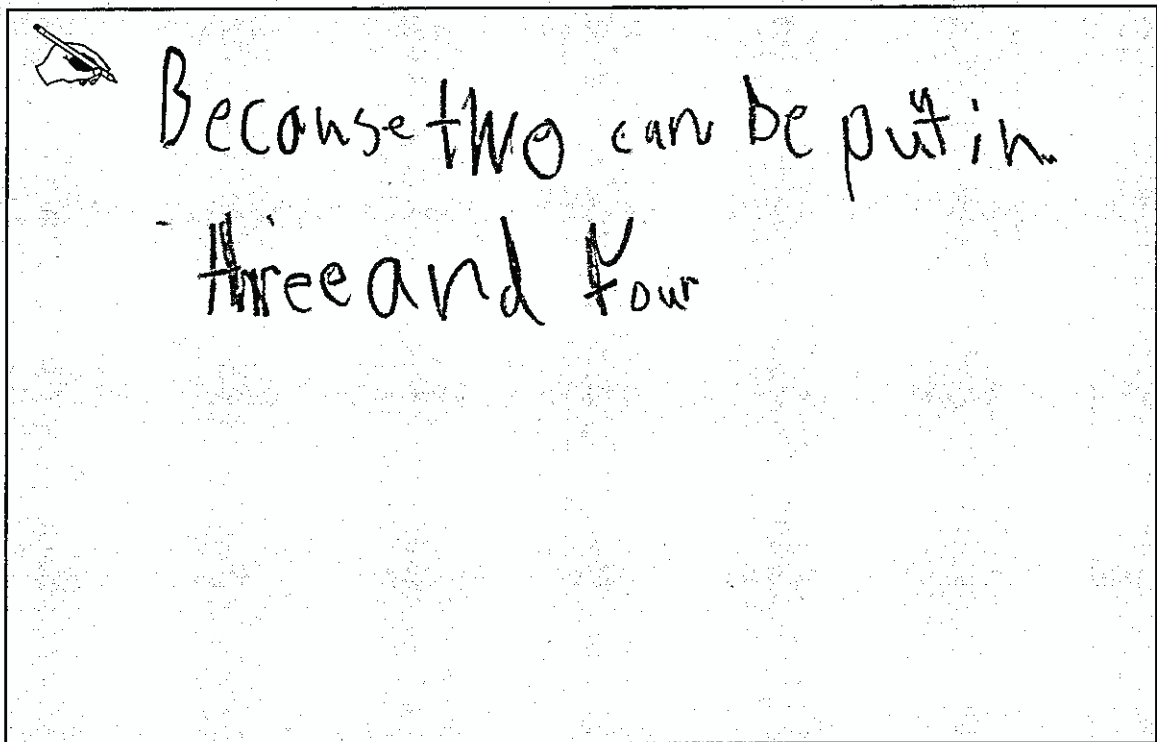 Because two can be put in
three and four